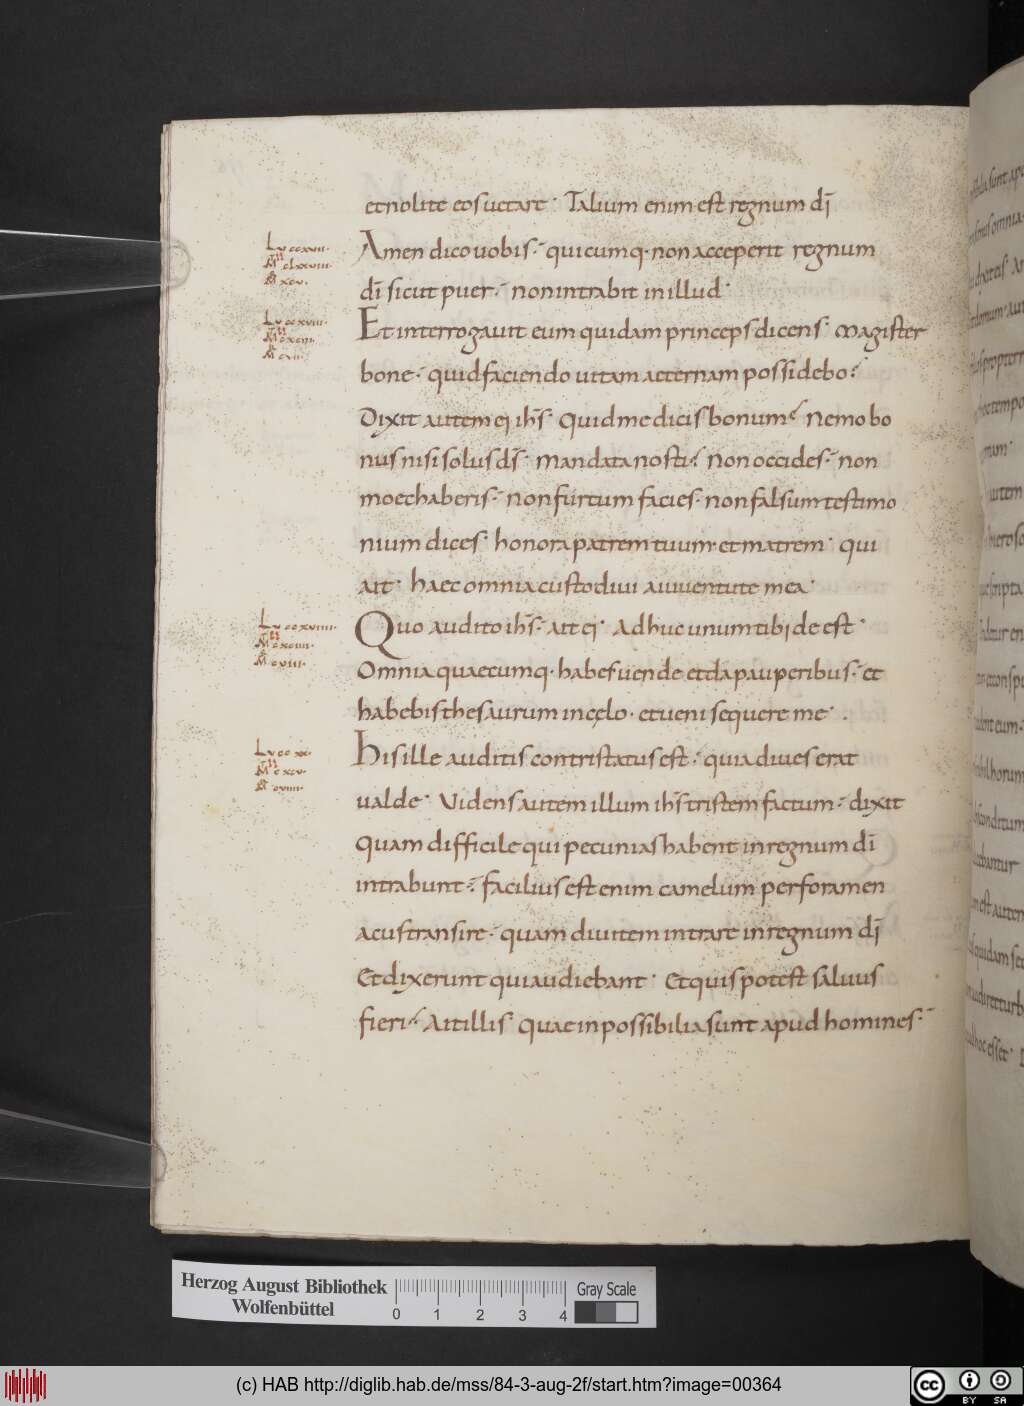 et nolite eos uetare· Talium enim est regnum dī
Lu ccxvii·
Amen dico uobis· quicumq· non acceperit regnum
dī sicut puer· non intrabit in illud·
Lu ccxviii·
Et interrogauit eum quidam princeps dicens· magister
bone· quid faciendo uitam aeternam possidebo?
Dixit autem ei ihs̄· Quid me dicis bonum? Nemo bo
nus nisi solus ds̄· mandata nosti· Non occides· non
moechaberis· Non furtum facies· non falsum testimo
nium dices· honora patrem tuum et matrem· qui
ait· haec omnia custodiui a iuuentute mea·
Lu ccxviiii·
Quo audito ihs̄· ait ei· Adhuc unum tibi de est·
Omnia quaecumq· habes uende et da pauperibus· et
habebis thesaurum in cęlo· et ueni sequere me·
Lu ccxx·
His ille auditis contristatus est· quia diues erat
ualde· Uidens autem illum ihs̄ tristem factum· dixit
Quam difficile qui pecunias habent in regnum dī
intrabunt· facilius est enim camelum per foramen
acus transire· quam diuitem intrare in regnum dī
Et dixerunt qui audiebant· Et quis potest saluus
fieri? Ait illis· Quae inpossibilia sunt apud homines·
Herzog August Bibliothek
Wolfenbüttel
0 1 2 3 4
Gray Scale
(c) HAB http://diglib.hab.de/mss/84-3-aug-2f/start.htm?image=00364
cc BY SA